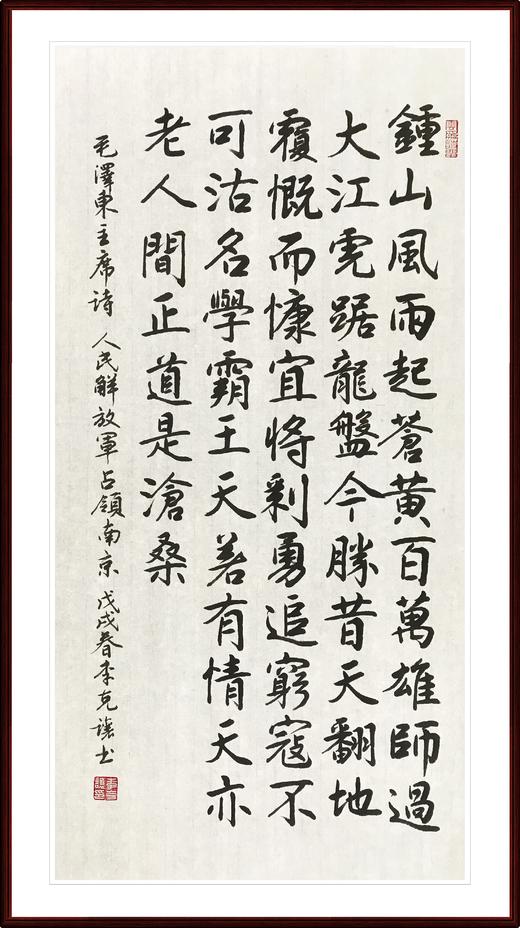 鍾山風雨起蒼黃百萬雄師過
大江虎踞龍盤今勝昔天翻地
覆慨而慷宜将剩勇追窮寇不
可沽名學霸王天若有情天亦
老人間正道是滄桑
毛澤東主席詩 人民解放軍占領南京 戊戌春李克讓书